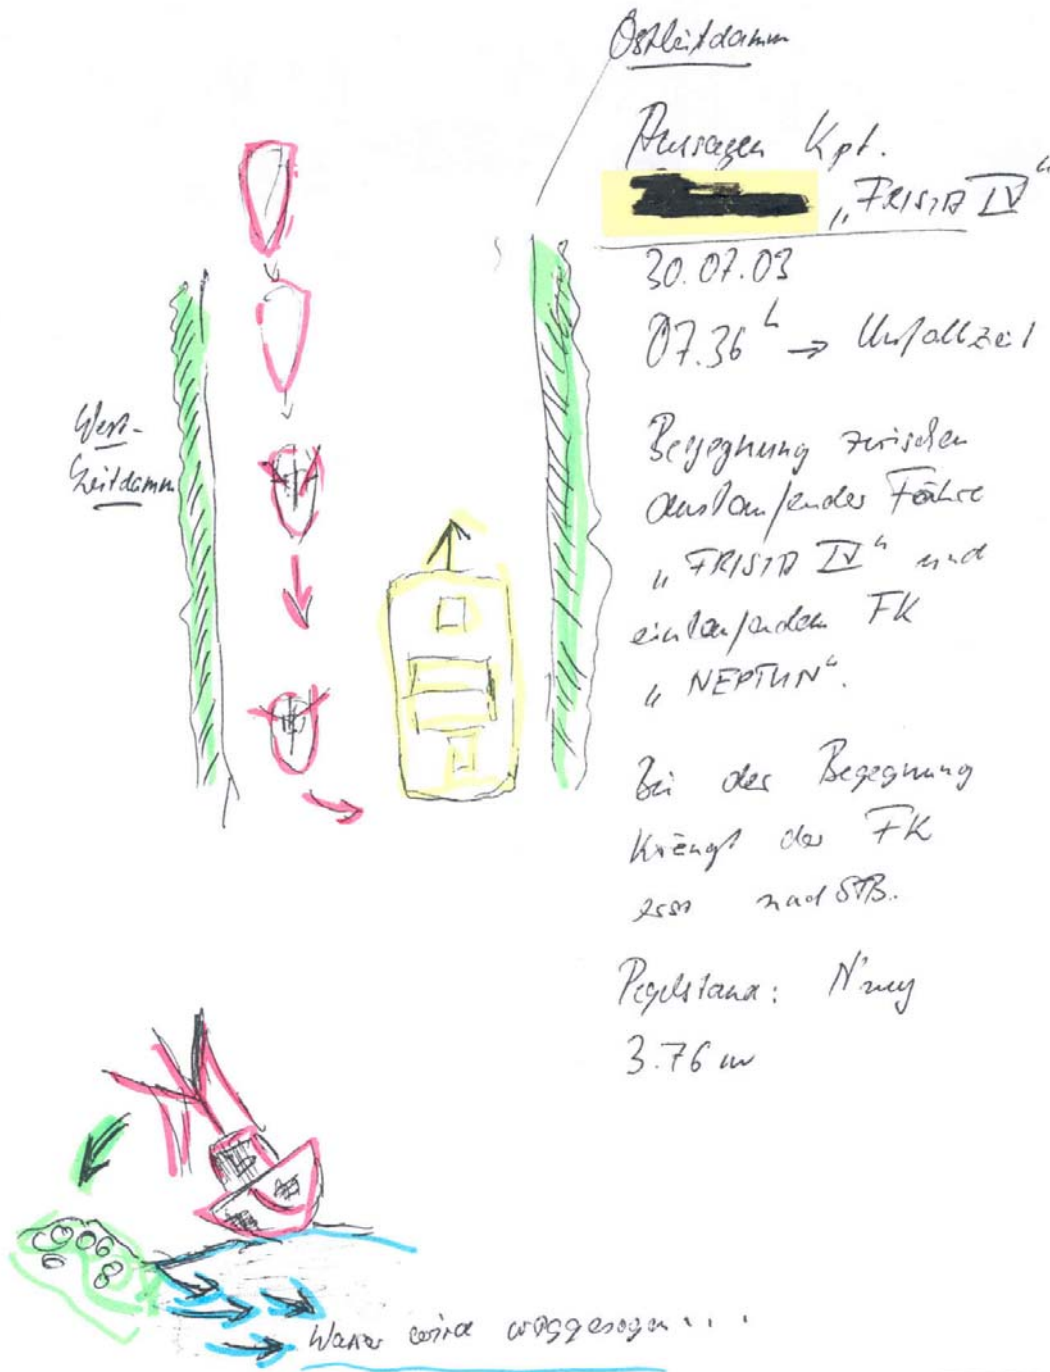 Ostleitdamm
Aussagen Kpt.
„FRISIA IV“
30.07.03
07.36 h → Unfallzeit
West-
Leitdamm
Begegnung zwischen
auslaufender Fähre
„FRISIA IV“ und
einlaufendem FK
„NEPTUN“.
Bei der Begegnung
krängt der FK
erst nach STB.
Pegelstand: N'ney
3.76 m
Wasser wird weggesogen...